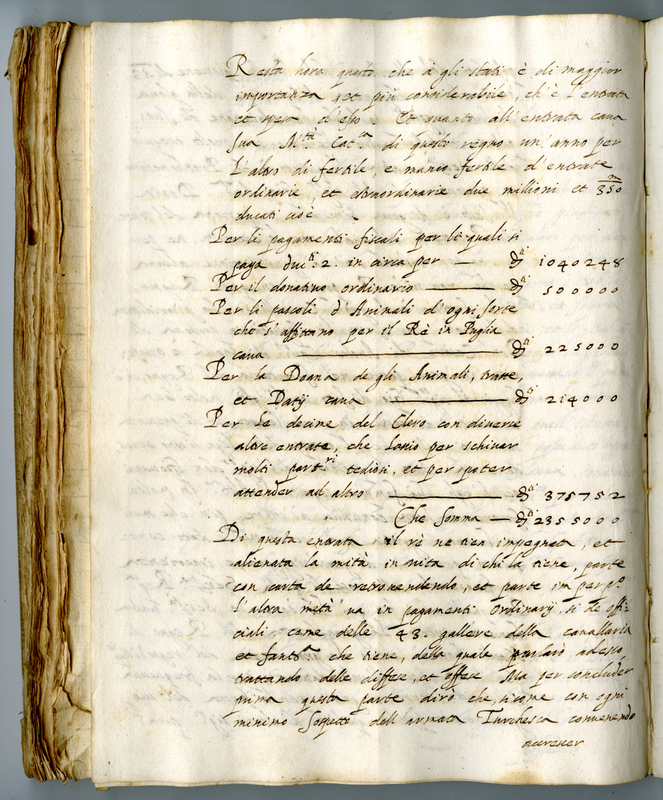 Resta hora questo che à gli stati è di maggior
importanza, et più considerabile, ch'è l'entrata
et spesa d'esso. Et quanto all'entrata caua
sua M.tà Cat.ca di questo regno un'anno per
l'altro di fertile, e manco fertile d'entrate
ordinarie, et estraordinarie due millioni et 350 m
ducati cioè
Per li pagamenti fiscali per le quali si
paga duc.ti 2. in circa per — d.ti 1040248
Per il donatiuo ordinario — d.ti 500000
Per li pascoli d'Animali d'ogni sorte
che s'affittano per il Rè in Puglia
caua — d.ti 225000
Per la Doana de gli Animali, tratte,
et Datij caua — d.ti 214000
Per le decime del Clero con diuerse
altre entrate, che lascio per schiuar
molti part.ri tediosi, et per poter
attender ad altro — d.ti 375752
Che somma — d.ti 2355000
Di questa entrata il rè ne tien impegnata, et
alienata la mità in uita di chi la tiene, parte
con carta de retrouendendo, et parte in perp.o
l'altra metà ua in pagamenti ordinarij, sì de offi-
ciali, come delle 43. gallere della cauallaria
et fant.ria che tiene, della quale parlarò adesso
trattando delle diffese, et offese. Ma per concluder
prima questa parte dirò che, sicome con ogni
minimo sospetto dell'armata Turchesca conuenendo
accrescer